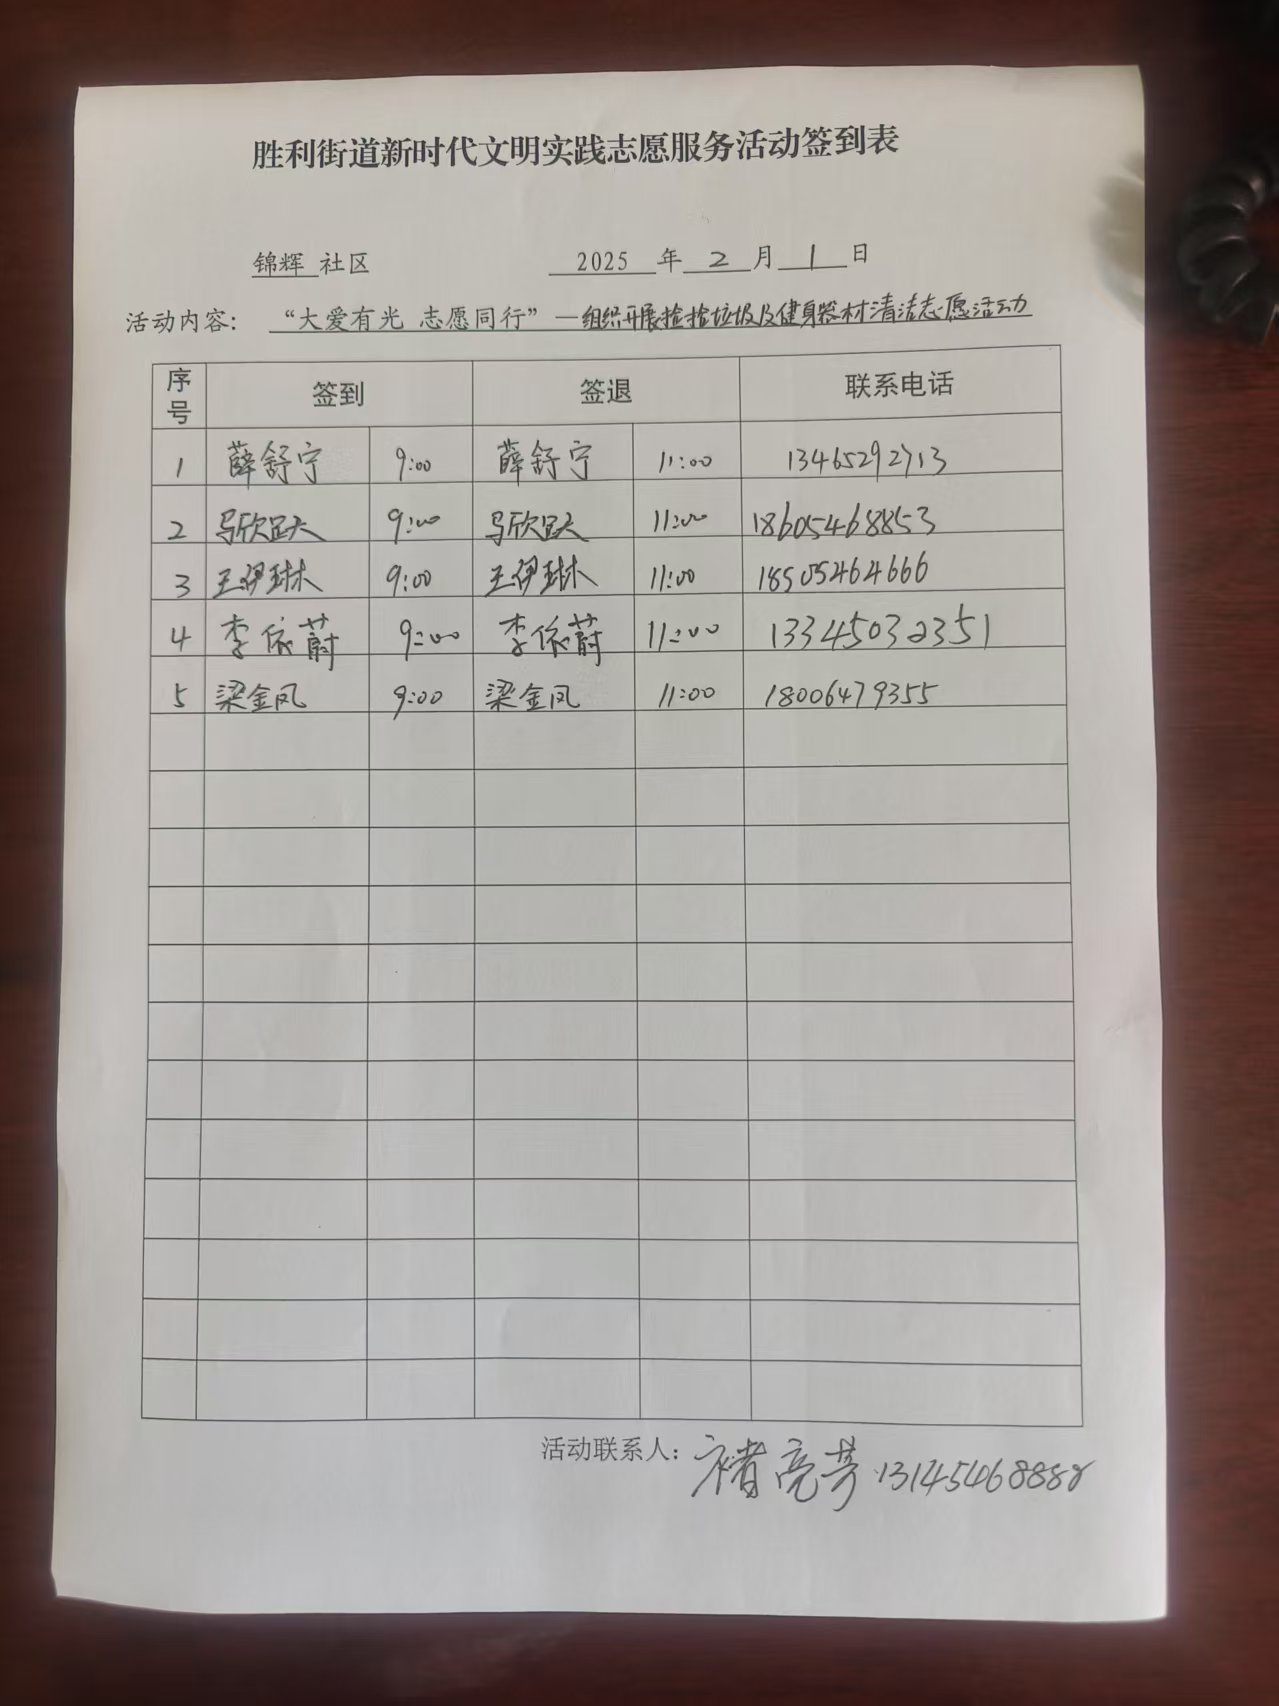 胜利街道新时代文明实践志愿服务活动签到表
锦辉 社区 2025 年 2 月 1 日
活动内容： “大爱有光 志愿同行”—组织开展捡捡垃圾及健身器材清洁志愿活动
序号 签到 签退 联系电话
1 薛舒宁 9:00 薛舒宁 11:00 13465292713
2 马欣跃 9:00 马欣跃 11:00 18605468853
3 王伊琳 9:00 王伊琳 11:00 18505464666
4 李依蔚 9:00 李依蔚 11:00 13345032351
5 梁金凤 9:00 梁金凤 11:00 18006479355
活动联系人： 褚亮芳 13145468888